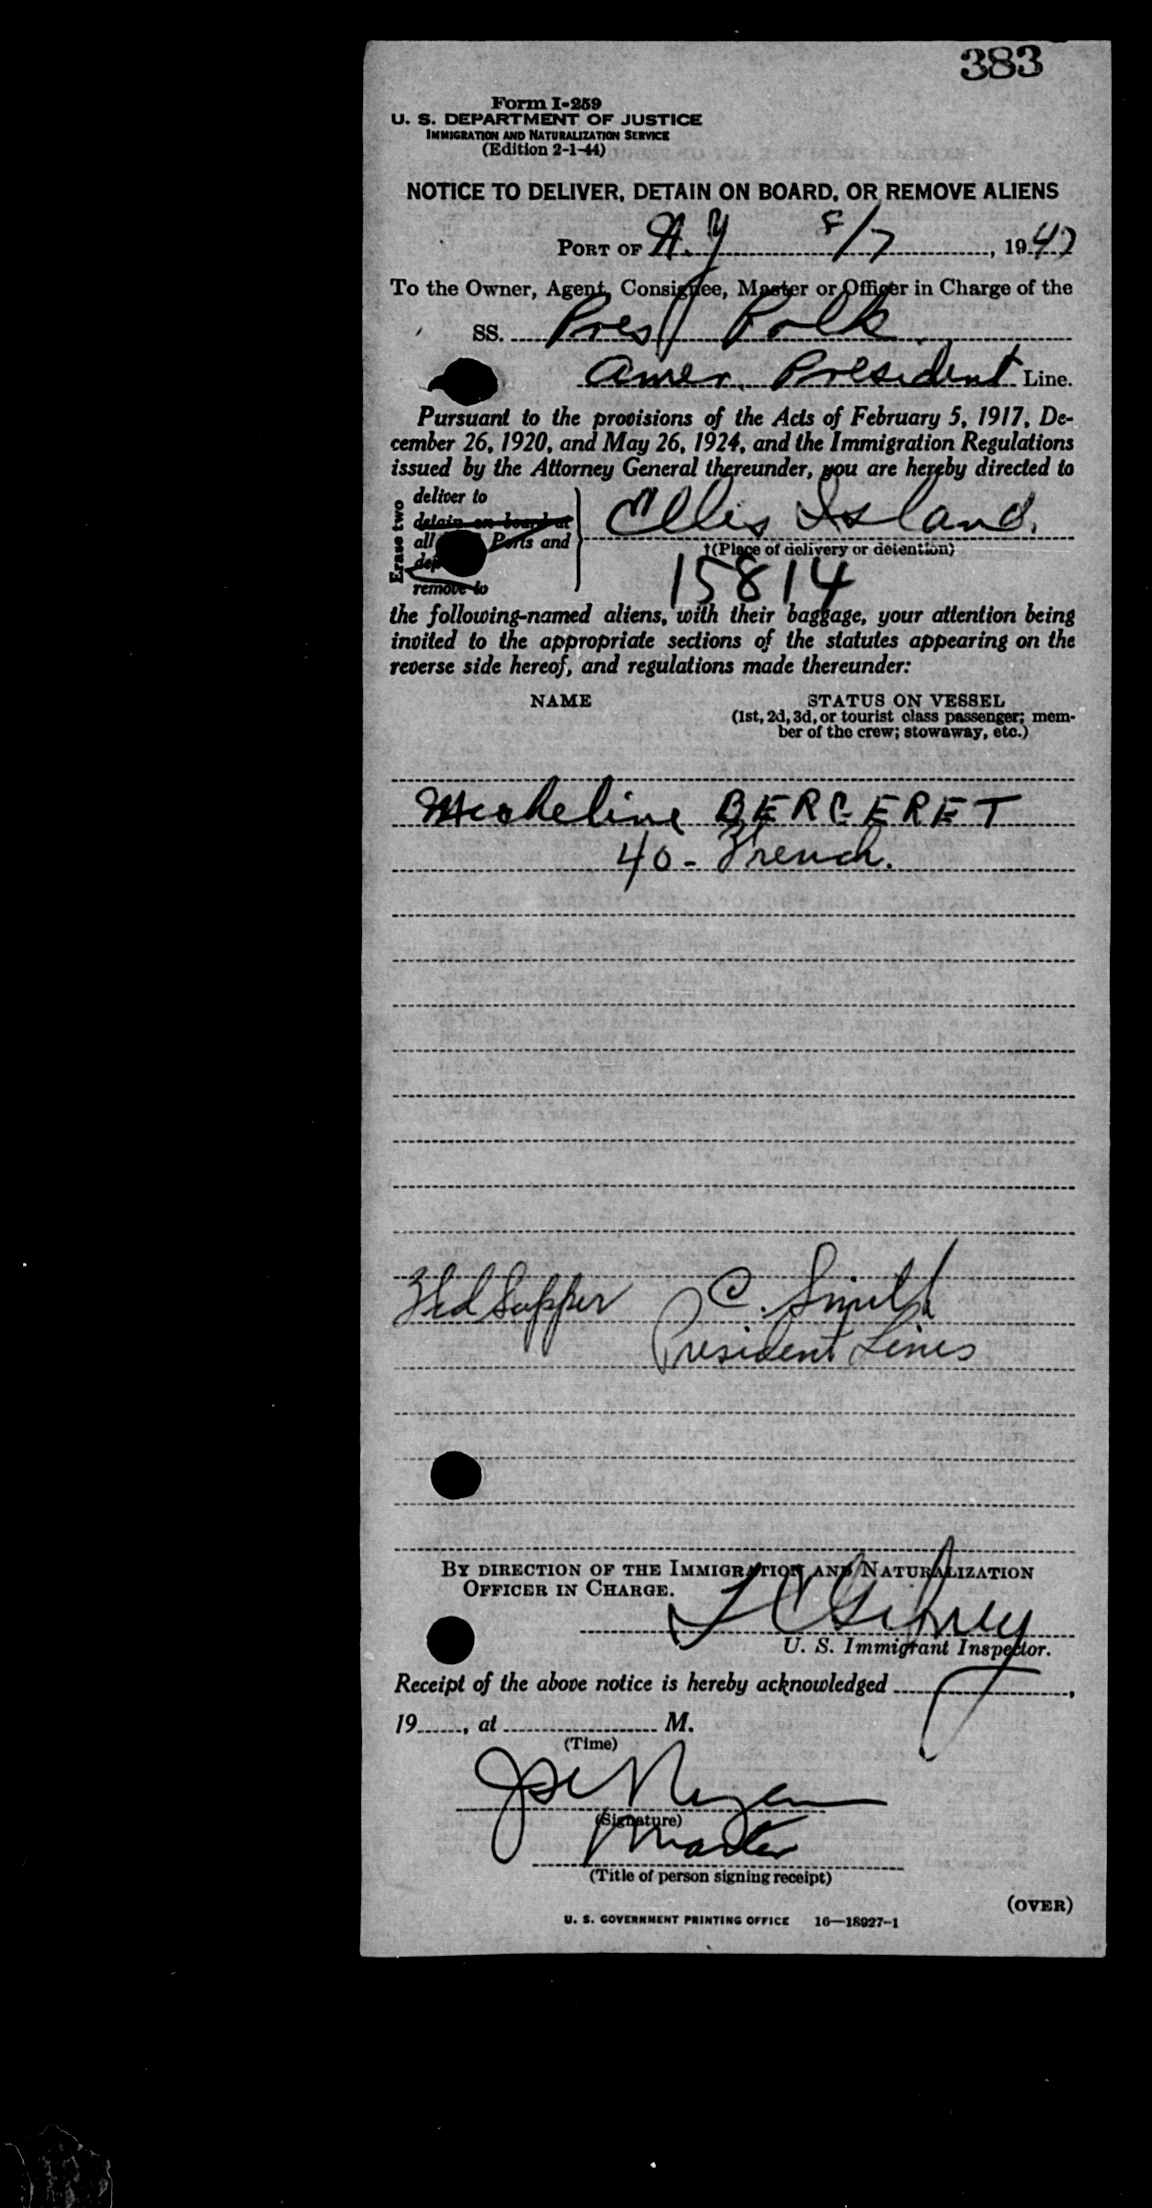 383
Form I-259
U. S. DEPARTMENT OF JUSTICE
IMMIGRATION AND NATURALIZATION SERVICE
(Edition 2-1-44)
NOTICE TO DELIVER, DETAIN ON BOARD, OR REMOVE ALIENS
PORT OF N.Y 8/7, 1947
To the Owner, Agent, Consignee, Master or Officer in Charge of the
SS. Pres Polk
Amer. President Line.
Pursuant to the provisions of the Acts of February 5, 1917, De-
cember 26, 1920, and May 26, 1924, and the Immigration Regulations
issued by the Attorney General thereunder, you are hereby directed to
Erase two
deliver to
detain on board at
all Ports and
remove to
Ellis Island.
†(Place of delivery or detention)
15814
the following-named aliens, with their baggage, your attention being
invited to the appropriate sections of the statutes appearing on the
reverse side hereof, and regulations made thereunder:
NAME STATUS ON VESSEL
(1st, 2d, 3d, or tourist class passenger; mem-
ber of the crew; stowaway, etc.)
Micheline BERGERET
40 - French.
Supper C. Smith
President Lines
BY DIRECTION OF THE IMMIGRATION AND NATURALIZATION
OFFICER IN CHARGE.
U. S. Immigrant Inspector.
Receipt of the above notice is hereby acknowledged ,
19 , at M.
(Time)
(Signature)
Master
(Title of person signing receipt)
(OVER)
U. S. GOVERNMENT PRINTING OFFICE 16—18927-1